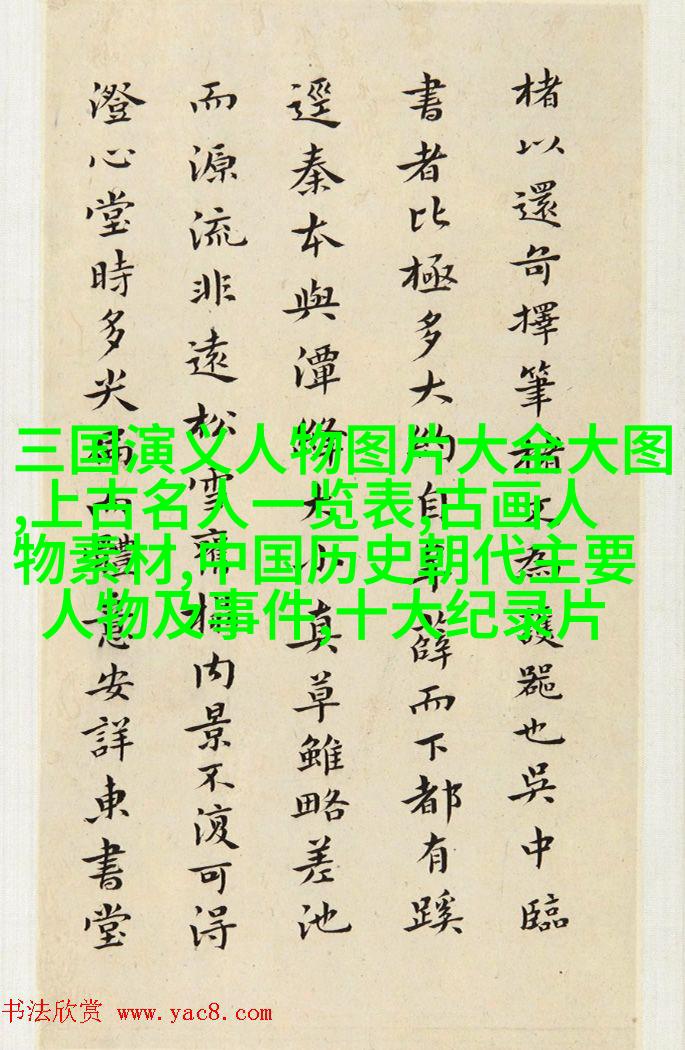 楮以還奇擇筆為護器也吳中臨
書者比極多大約自草薛而下都有蹊
逕秦本與潭絳大小真草雖略差池
而源流非遠松雪齋內景不復可得
澄心堂時多尖扁而體意安詳東書堂
三国演义人物图片大全大图
,上古名人一览表,古画人
物素材,中国历史朝代主要
人物及事件,十大纪录片
书法欣赏 www.yac8.com